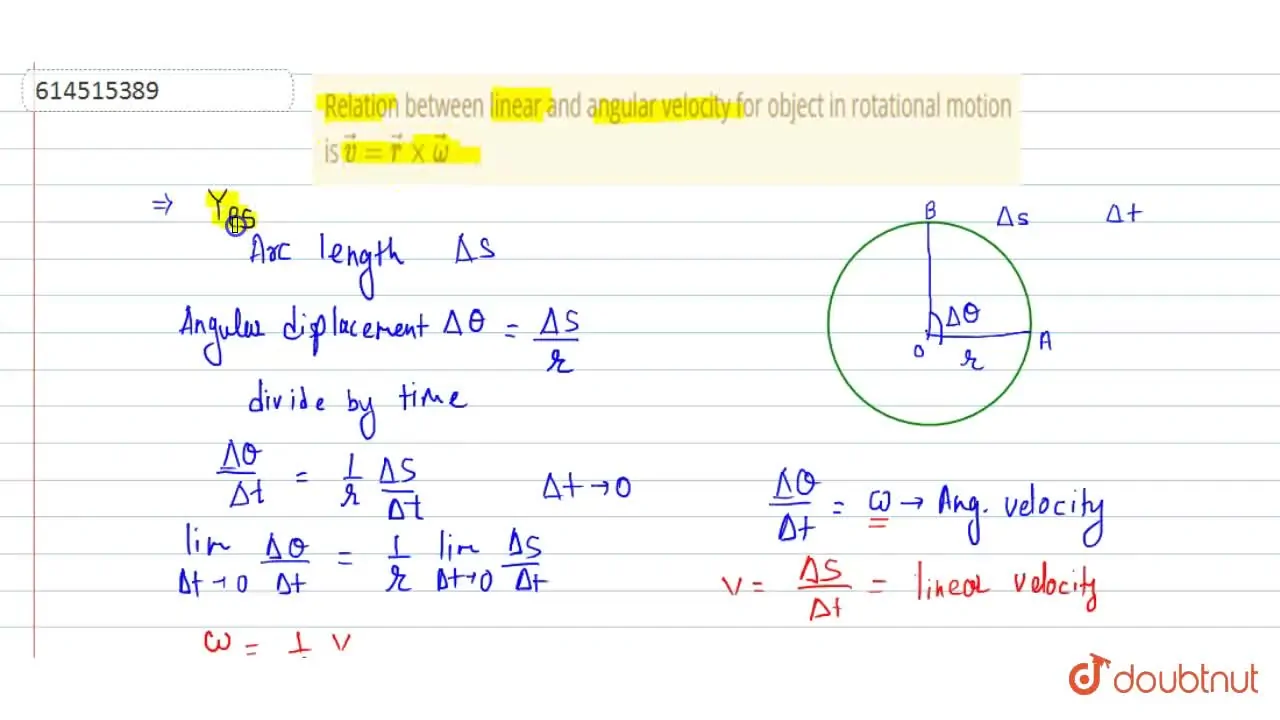 614515389
Relation between linear and angular velocity for object in rotational motion
is v⃗ = r⃗ × ω⃗
⇒ Yes
Arc length Δs
Angular diplacement Δθ = Δs/r
divide by time
Δθ/Δt = 1/r Δs/Δt Δt→0
lim Δt→0 Δθ/Δt = 1/r lim Δt→0 Δs/Δt
ω = 1 v
B Δs Δt
Δθ
O r A
Δθ/Δt = ω → Ang. velocity
v = Δs/Δt = linear velocity
doubtnut